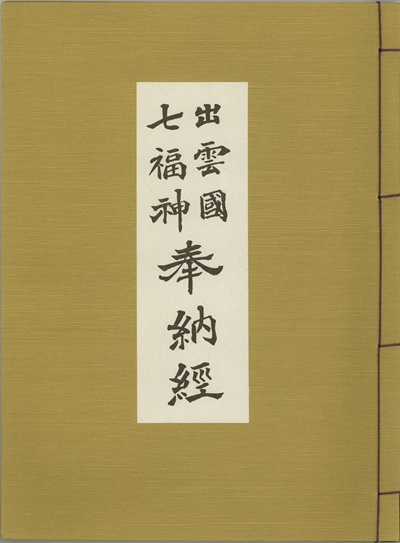 出雲國
七福神
奉納經